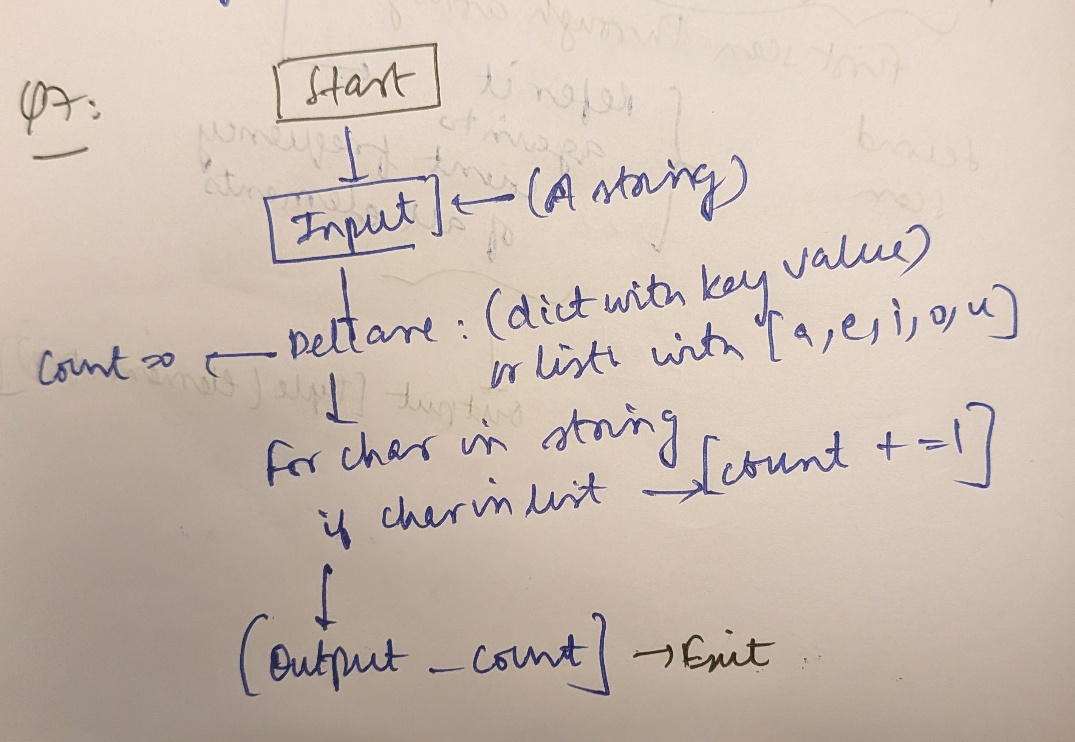 Q7:
Start
Input ← (A string)
Count = 0 ← Declare : (dict with key value)
or list with [a, e, i, o, u]
For char in string
if char in list → [count + = 1]
[Output _ count] → Exit